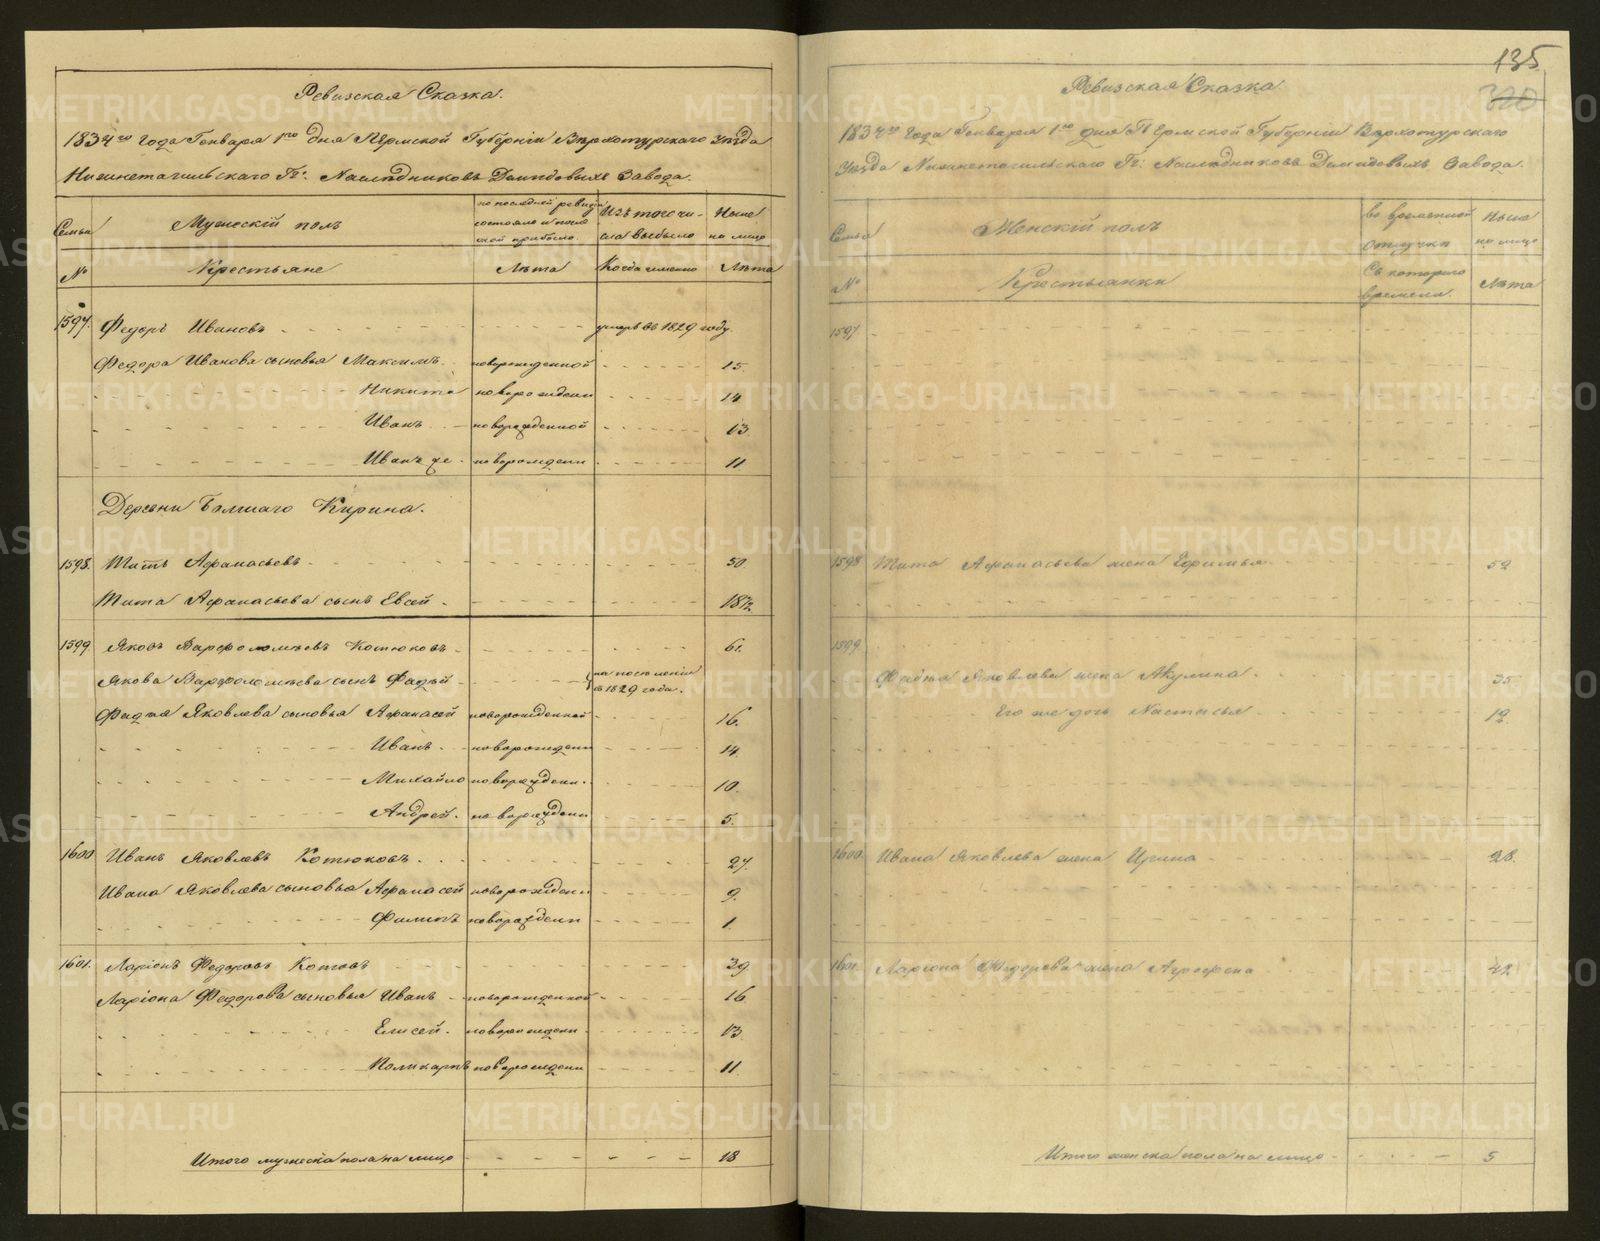 Ревизская Сказка.
1834го года Генваря 1го дня Пермской Губерніи Верхотурскаго Уезда
Нижнетагильскаго Гг: Наследниковъ Демидовыхъ Завода.
Семьи | Мужескій полъ | по последней ревизіи состояло и после оной прибыло. | Изъ того числа выбыло | Ныне на лицо
№ | Крестьяне | Лѣта | Когда именно | Лѣта
1597. Федоръ Ивановъ умеръ въ 1829 году.
Федора Иванова сыновья Максимъ новорожденной 15.
Никита новорожден 14
Иванъ новорожденной 13.
Иванъ же новорожден 11
Деревни Болшаго Кирина.
1598. Титъ Афанасьевъ 50.
Тита Афанасьева сынъ Евсей 18½
1599 Яковъ Варфоломѣевъ Котюковъ 61.
Якова Варфоломѣева сынъ Фадѣй на поселеніи
въ 1829 года.
Фадѣя Яковлева сыновья Афанасей новорожденной 16.
Иванъ новорожден 14
Михайло новорожден. 10
Андрей новорожден 5.
1600 Иванъ Яковлевъ Котюковъ 27.
Ивана Яковлева сыновья Афанасей новорожден 9.
Филипъ новорожден 1.
1601. Ларіонъ Федоровъ Котовъ 39.
Ларіона Федорова сыновья Иванъ новорожденной 16
Елисей новорожден 13.
Поликарпъ новорожден 11
Итого мужеска пола на лицо 18
135
320
Ревизская Сказка
1834го года Генваря 1го дня Пермской Губерніи Верхотурскаго
Уезда Нижнетагильскаго Гг: Наследниковъ Демидовыхъ Завода.
Семьи | Женскій полъ | во временной отлучке | Ныне на лицо
№ | Крестьянки | Съ котораго времени | Лѣта
1597
1598 Тита Афанасьева жена Ефимья 52
1599
Фадѣя Яковлева жена Акулина 35
Его же дочь Настасья 12
1600. Ивана Яковлева жена Ирина 28.
1601. Ларіона Федорова жена Агрофена 42
Итого женска пола на лицо 5
METRIKI.GASO-URAL.RU